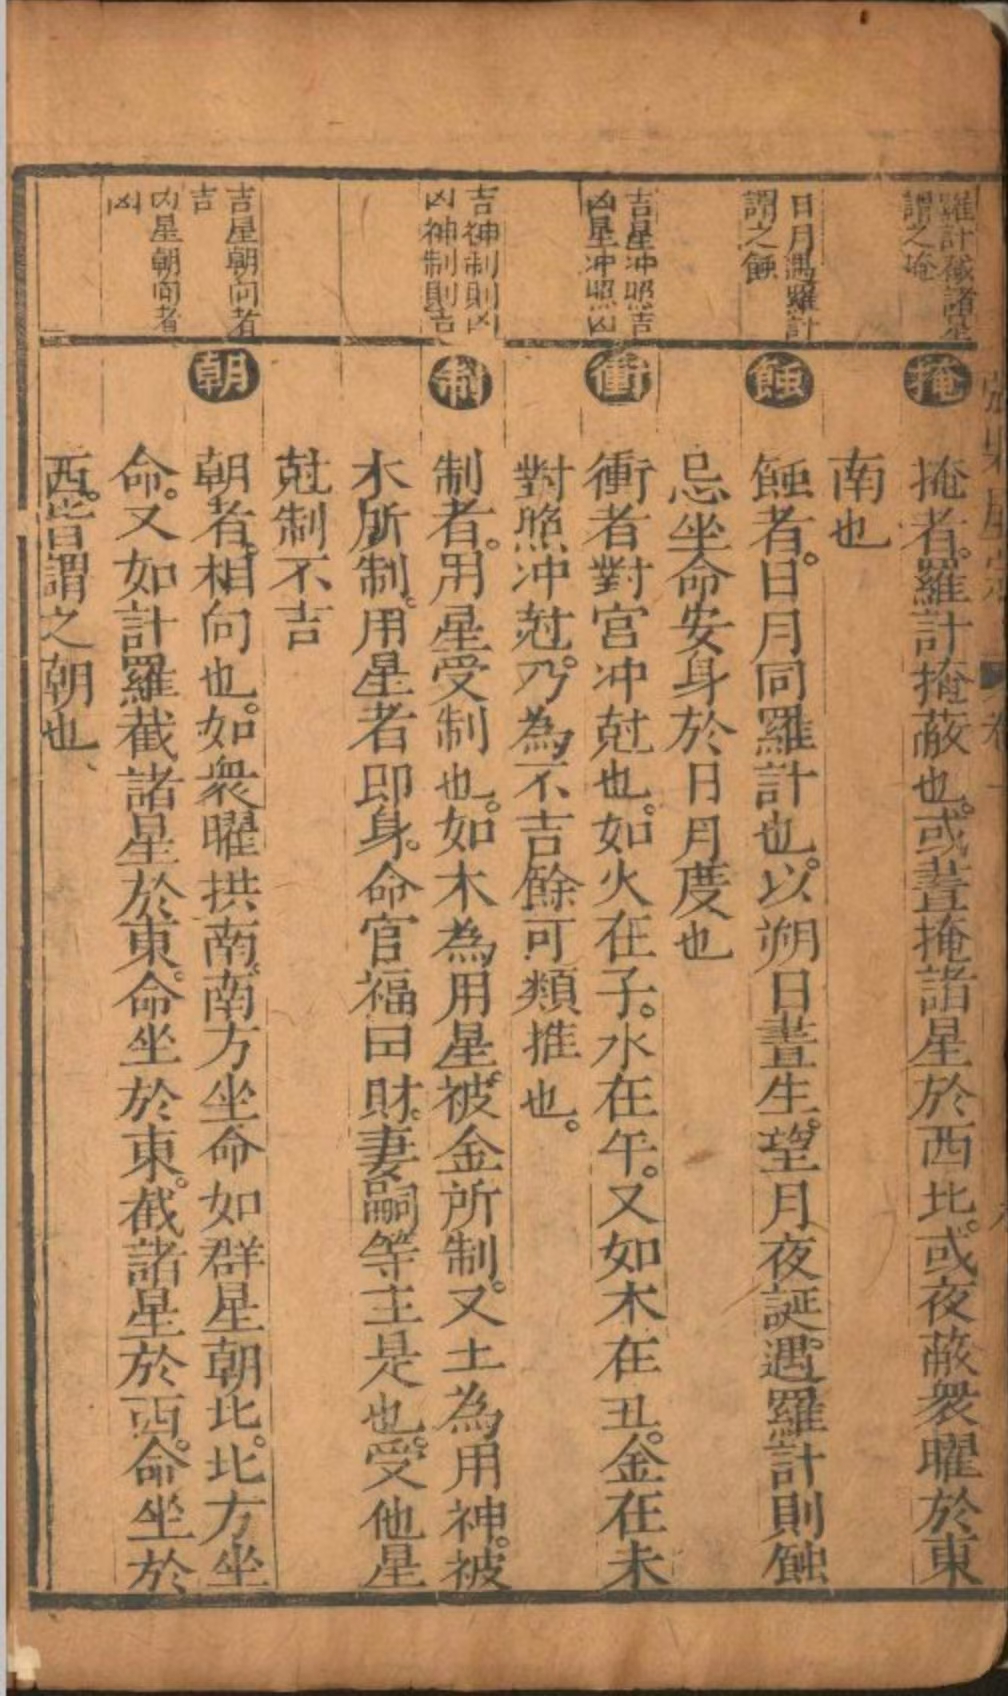 羅計截諸星
謂之掩
掩
掩者。羅計掩蔽也。或晝掩諸星於西北。或夜蔽衆曜於東
南也
日月遇羅計
謂之蝕
蝕
蝕者。日月同羅計也。以朔日晝生。望月夜誕。遇羅計則蝕
忌坐命安身於日月度也
吉星冲照吉
凶星冲照凶
衝
衝者對宫冲尅也。如火在子。水在午。又如木在丑。金在未
對照冲尅。乃為不吉餘可類推也。
吉神制則凶
凶神制則吉
制
制者。用星受制也。如木為用星。被金所制。又土為用神。被
木所制。用星者即身。命官福田財。妻嗣等主是也。受他星
尅制不吉
吉星朝向者
吉
凶星朝向者
凶
朝
朝者。相向也。如衆曜拱南。南方坐命如群星朝北。北方坐
命。又如計羅截諸星於東。命坐於東。截諸星於西。命坐於
西。皆謂之朝也